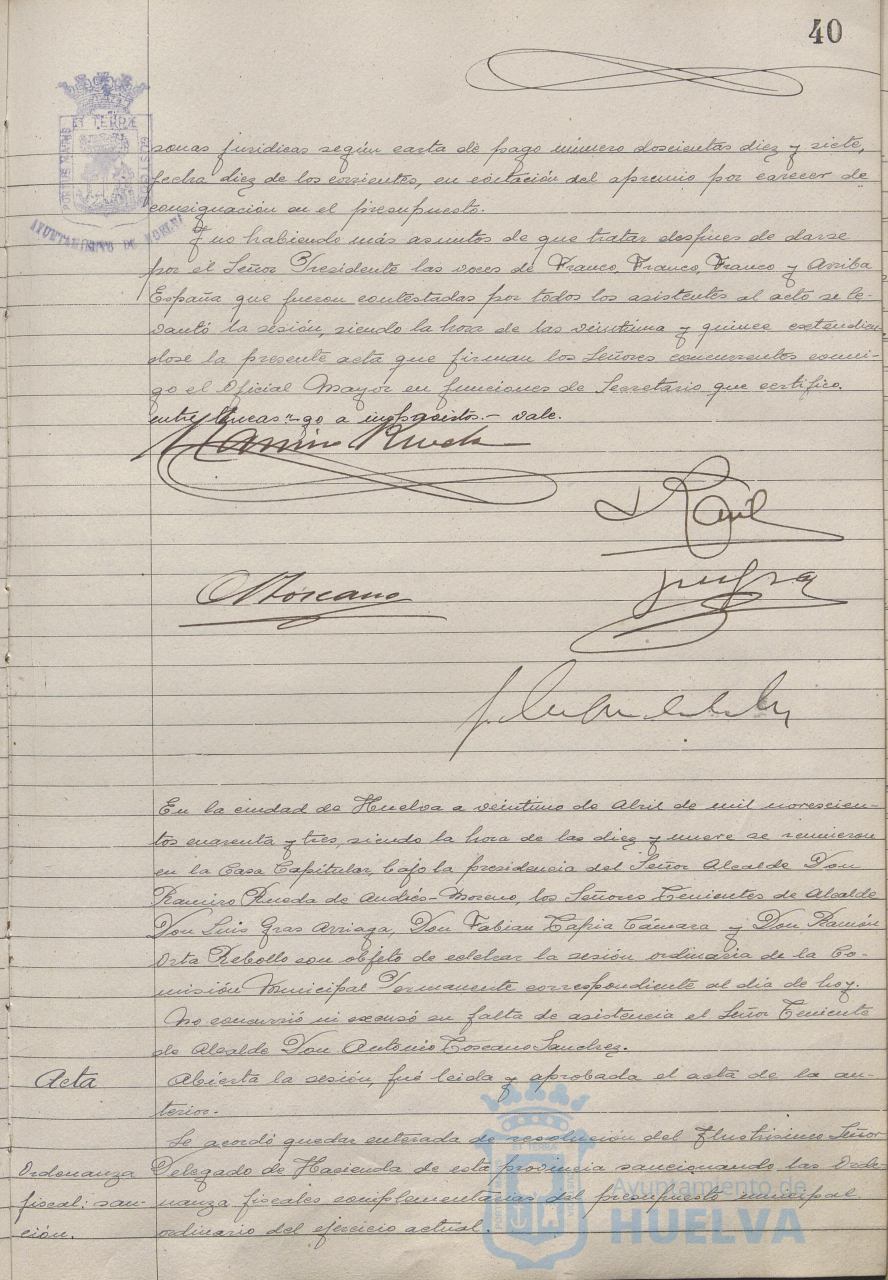 40
ET TERRÆ
AYUNTAMIENTO DE HUELVA
sonas juridicas según carta de pago número doscientas diez y siete,
fecha diez de los corrientes, en evitación del apremio por carecer de
consignación en el presupuesto.
Y no habiendo más asuntos de que tratar despues de darse
por el Señor Presidente las voces de Franco, Franco, Franco y Arriba
España que fueron contestadas por todos los asistentes al acto se le-
vantó la sesión, siendo la hora de las veintiuna y quince extendien-
dose la presente acta que firman los Señores concurrentes conmi-
go el Oficial Mayor en funciones de Secretario que certifico.
entre lineas = go a = vale.
Ramiro Rueda
Toscano
En la ciudad de Huelva a veintiuno de Abril de mil novescien-
tos cuarenta y tres, siendo la hora de las diez y nueve se reunieron
en la Casa Capitular, bajo la presidencia del Señor Alcalde Don
Ramiro Rueda de Andrés-Moreno, los Señores Tenientes de Alcalde
Don Luis Gras Arriaga, Don Fabian Tapia Cámara y Don Ramón
Orta Rebollo con objeto de celebrar la sesión ordinaria de la Co-
misión Municipal Permanente correspondiente al dia de hoy.
No concurrió ni excusó su falta de asistencia el Señor Teniente
de Alcalde Don Antonio Toscano Sanchez.
Acta
Abierta la sesión, fué leida y aprobada el acta de la an-
terior.
Ordenanza
fiscal: san-
ción.
Se acordó quedar enterada de resolución del Ilustrisimo Señor
Delegado de Hacienda de esta provincia sancionando las Orde-
nanza fiscales complementarias del presupuesto municipal
ordinario del ejercicio actual.
Ayuntamiento de
HUELVA